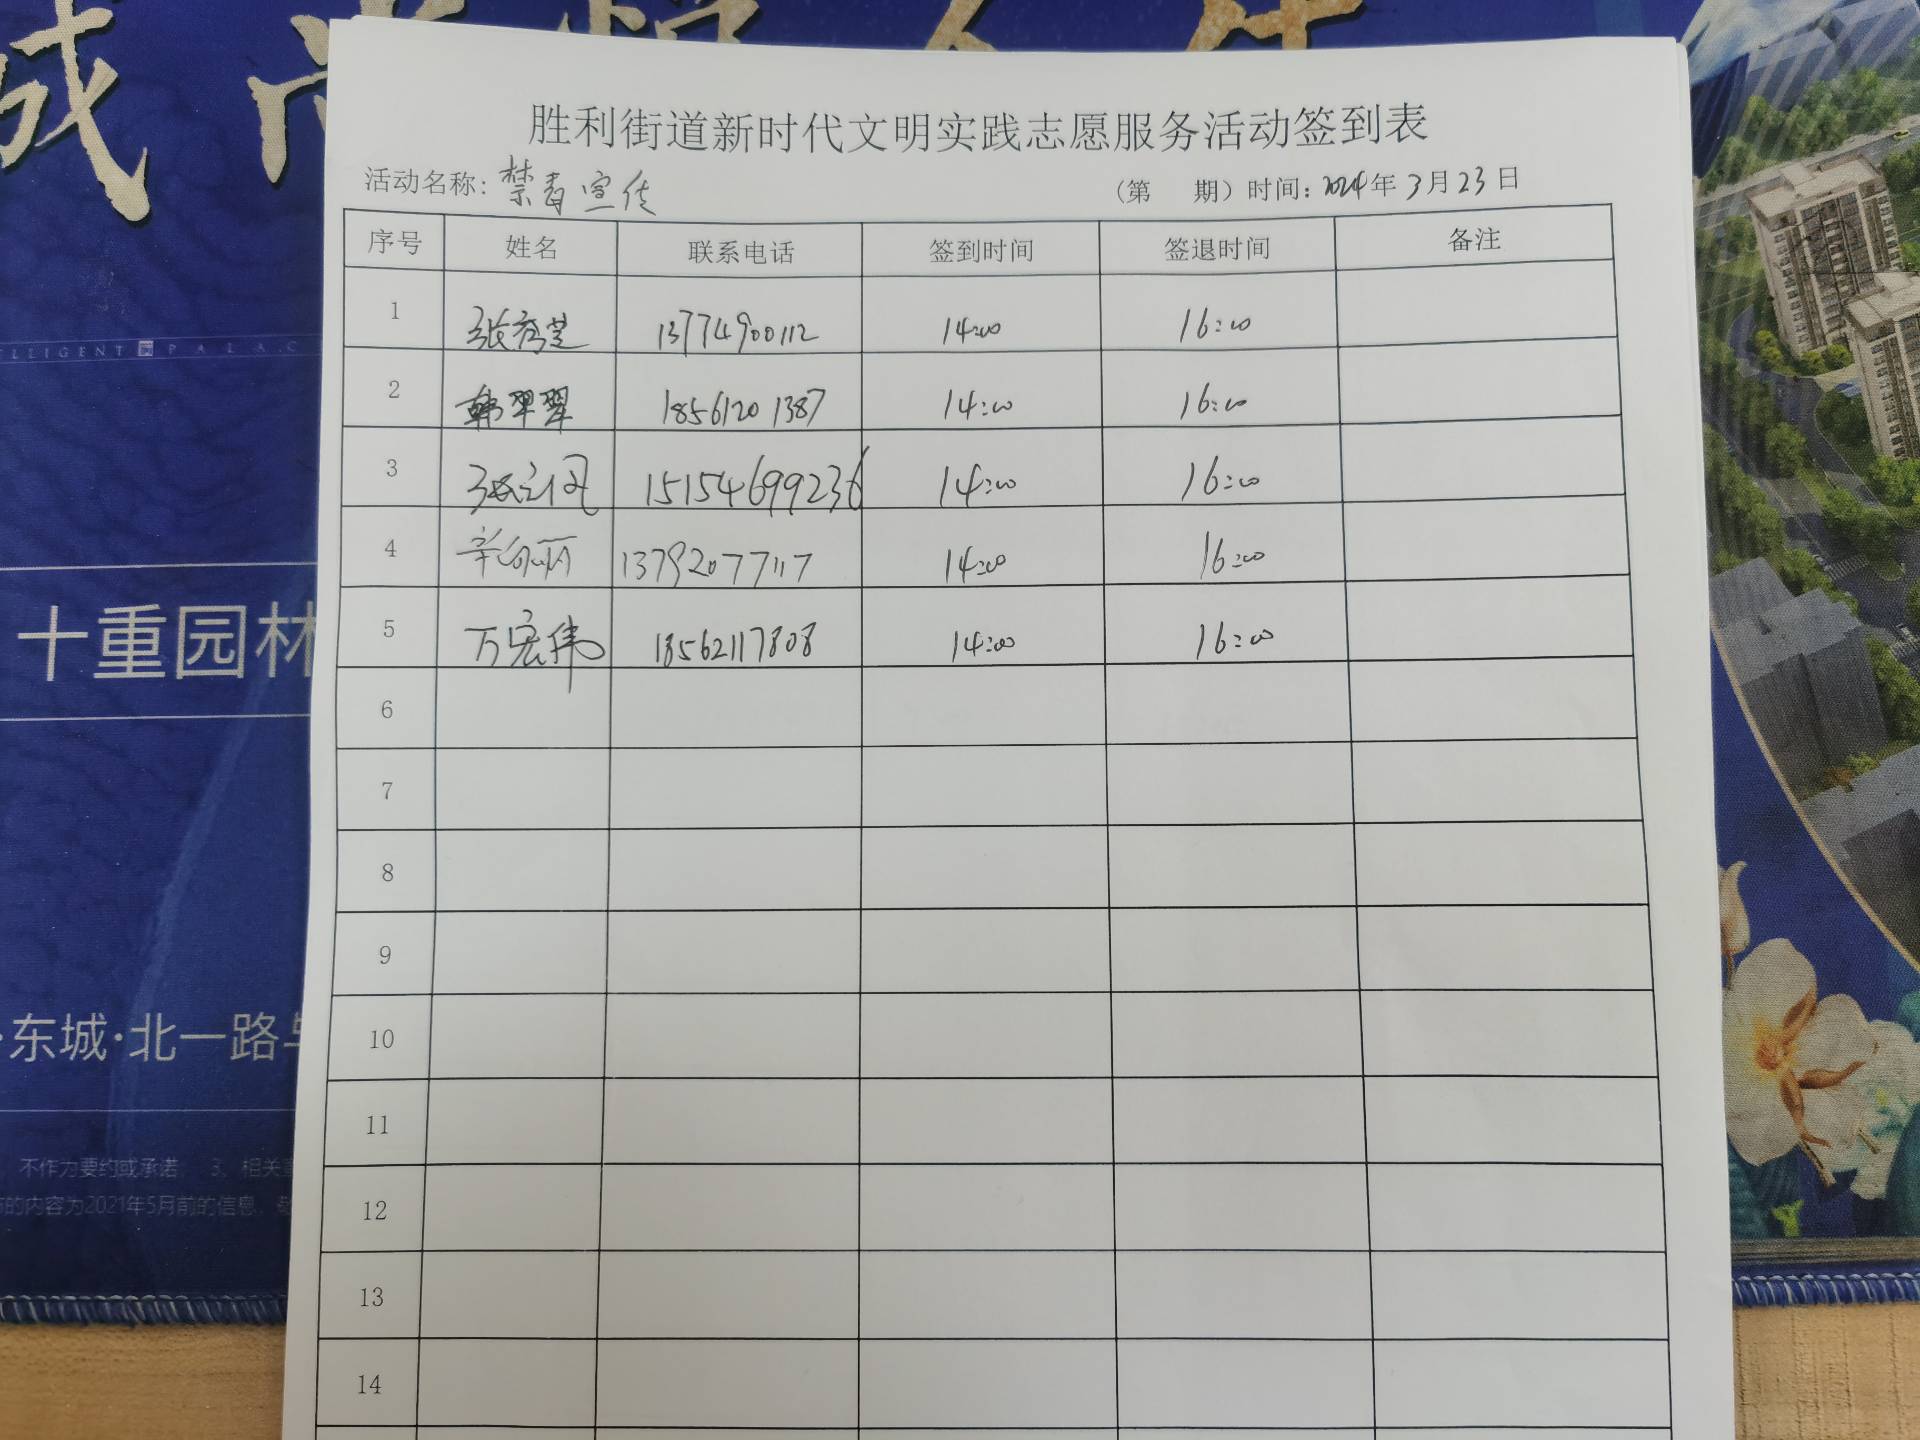 十重园林
·东城·北一路与
不作为要约或承诺; 3、相关
的内容为2021年5月前的信息,
胜利街道新时代文明实践志愿服务活动签到表
活动名称: 禁毒宣传 (第 期) 时间: 2024年 3月23日
序号 姓名 联系电话 签到时间 签退时间 备注
1 张秀芝 13774900112 14:00 16:00
2 韩翠翠 18561201387 14:00 16:00
3 张 15154699236 14:00 16:00
4 辛 丽 13792077117 14:00 16:00
5 万宏伟 18562117808 14:00 16:00
6
7
8
9
10
11
12
13
14